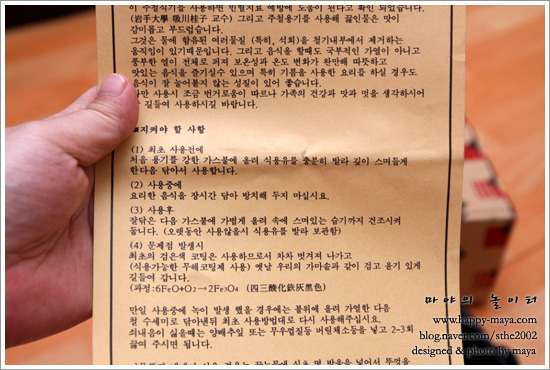 이 주철식기를 사용하면 빈혈치료 예방에 도움이 된다고 확인 되었습니다.
(岩手大學 及川桂子 교수) 그리고 주철용기를 사용해 끓인물은 맛이
감미롭고 부드럽습니다.
그것은 물에 함유된 여러물질 (특히, 석회)을 철기내부에서 제거하는
움직임이 있기때문입니다. 그리고 음식을 할때도 국부적인 가열이 아니고
풍부한 열이 전체로 퍼져 보온성과 온도 변화가 완만해 따뜻하고
맛있는 음식을 즐기실수 있으며 특히 기름을 사용한 요리를 하실 경우도
음식이 잘 눌어붙지 않는 성질이 있어 좋습니다.
만 사용시 조금 번거로움이 따르나 가족의 건강과 맛과 멋을 생각하시어
길들여 사용하시길 바랍니다.
※지켜야 할 사항
(1) 최초 사용전에
처음 용기를 강한 가스불에 올려 식용유를 충분히 발라 깊이 스며들게
한다음 닦아서 사용합니다.
(2) 사용중에
요리한 음식을 장시간 담아 방치해 두지 마십시요.
(3) 사용후
잘닦은 다음 가스불에 가볍게 올려 속에 스며있는 습기까지 건조시켜
둡니다. (오랫동안 사용않을시 식용유를 발라 보관함)
(4) 문제점 발생시
최초의 검은색 코팅은 사용하므로서 차차 벗겨져 나가고
(식용가능한 무해코팅제 사용) 옛날 우리의 가마솥과 같이 검고 윤기 있게
길들여 갑니다.
(과정:6FeO+O₂→2Fe₃O₄ (四三酸化鉄灰黑色)
만일 사용중에 녹이 발생 했을 경우에는 불위에 올려 가열한 다음
철 수세미로 닦아낸뒤 최초 사용방법대로 다시 사용해주십시요.
쇠내음이 싫을때는 양배추잎 또는 무우껍질등 버릴채소등을 넣고 2-3회
끓여 주시면 됩니다.
마야의 놀이터
www.happy-maya.com
blog.naver.com/sthe2002
designed & photo by maya